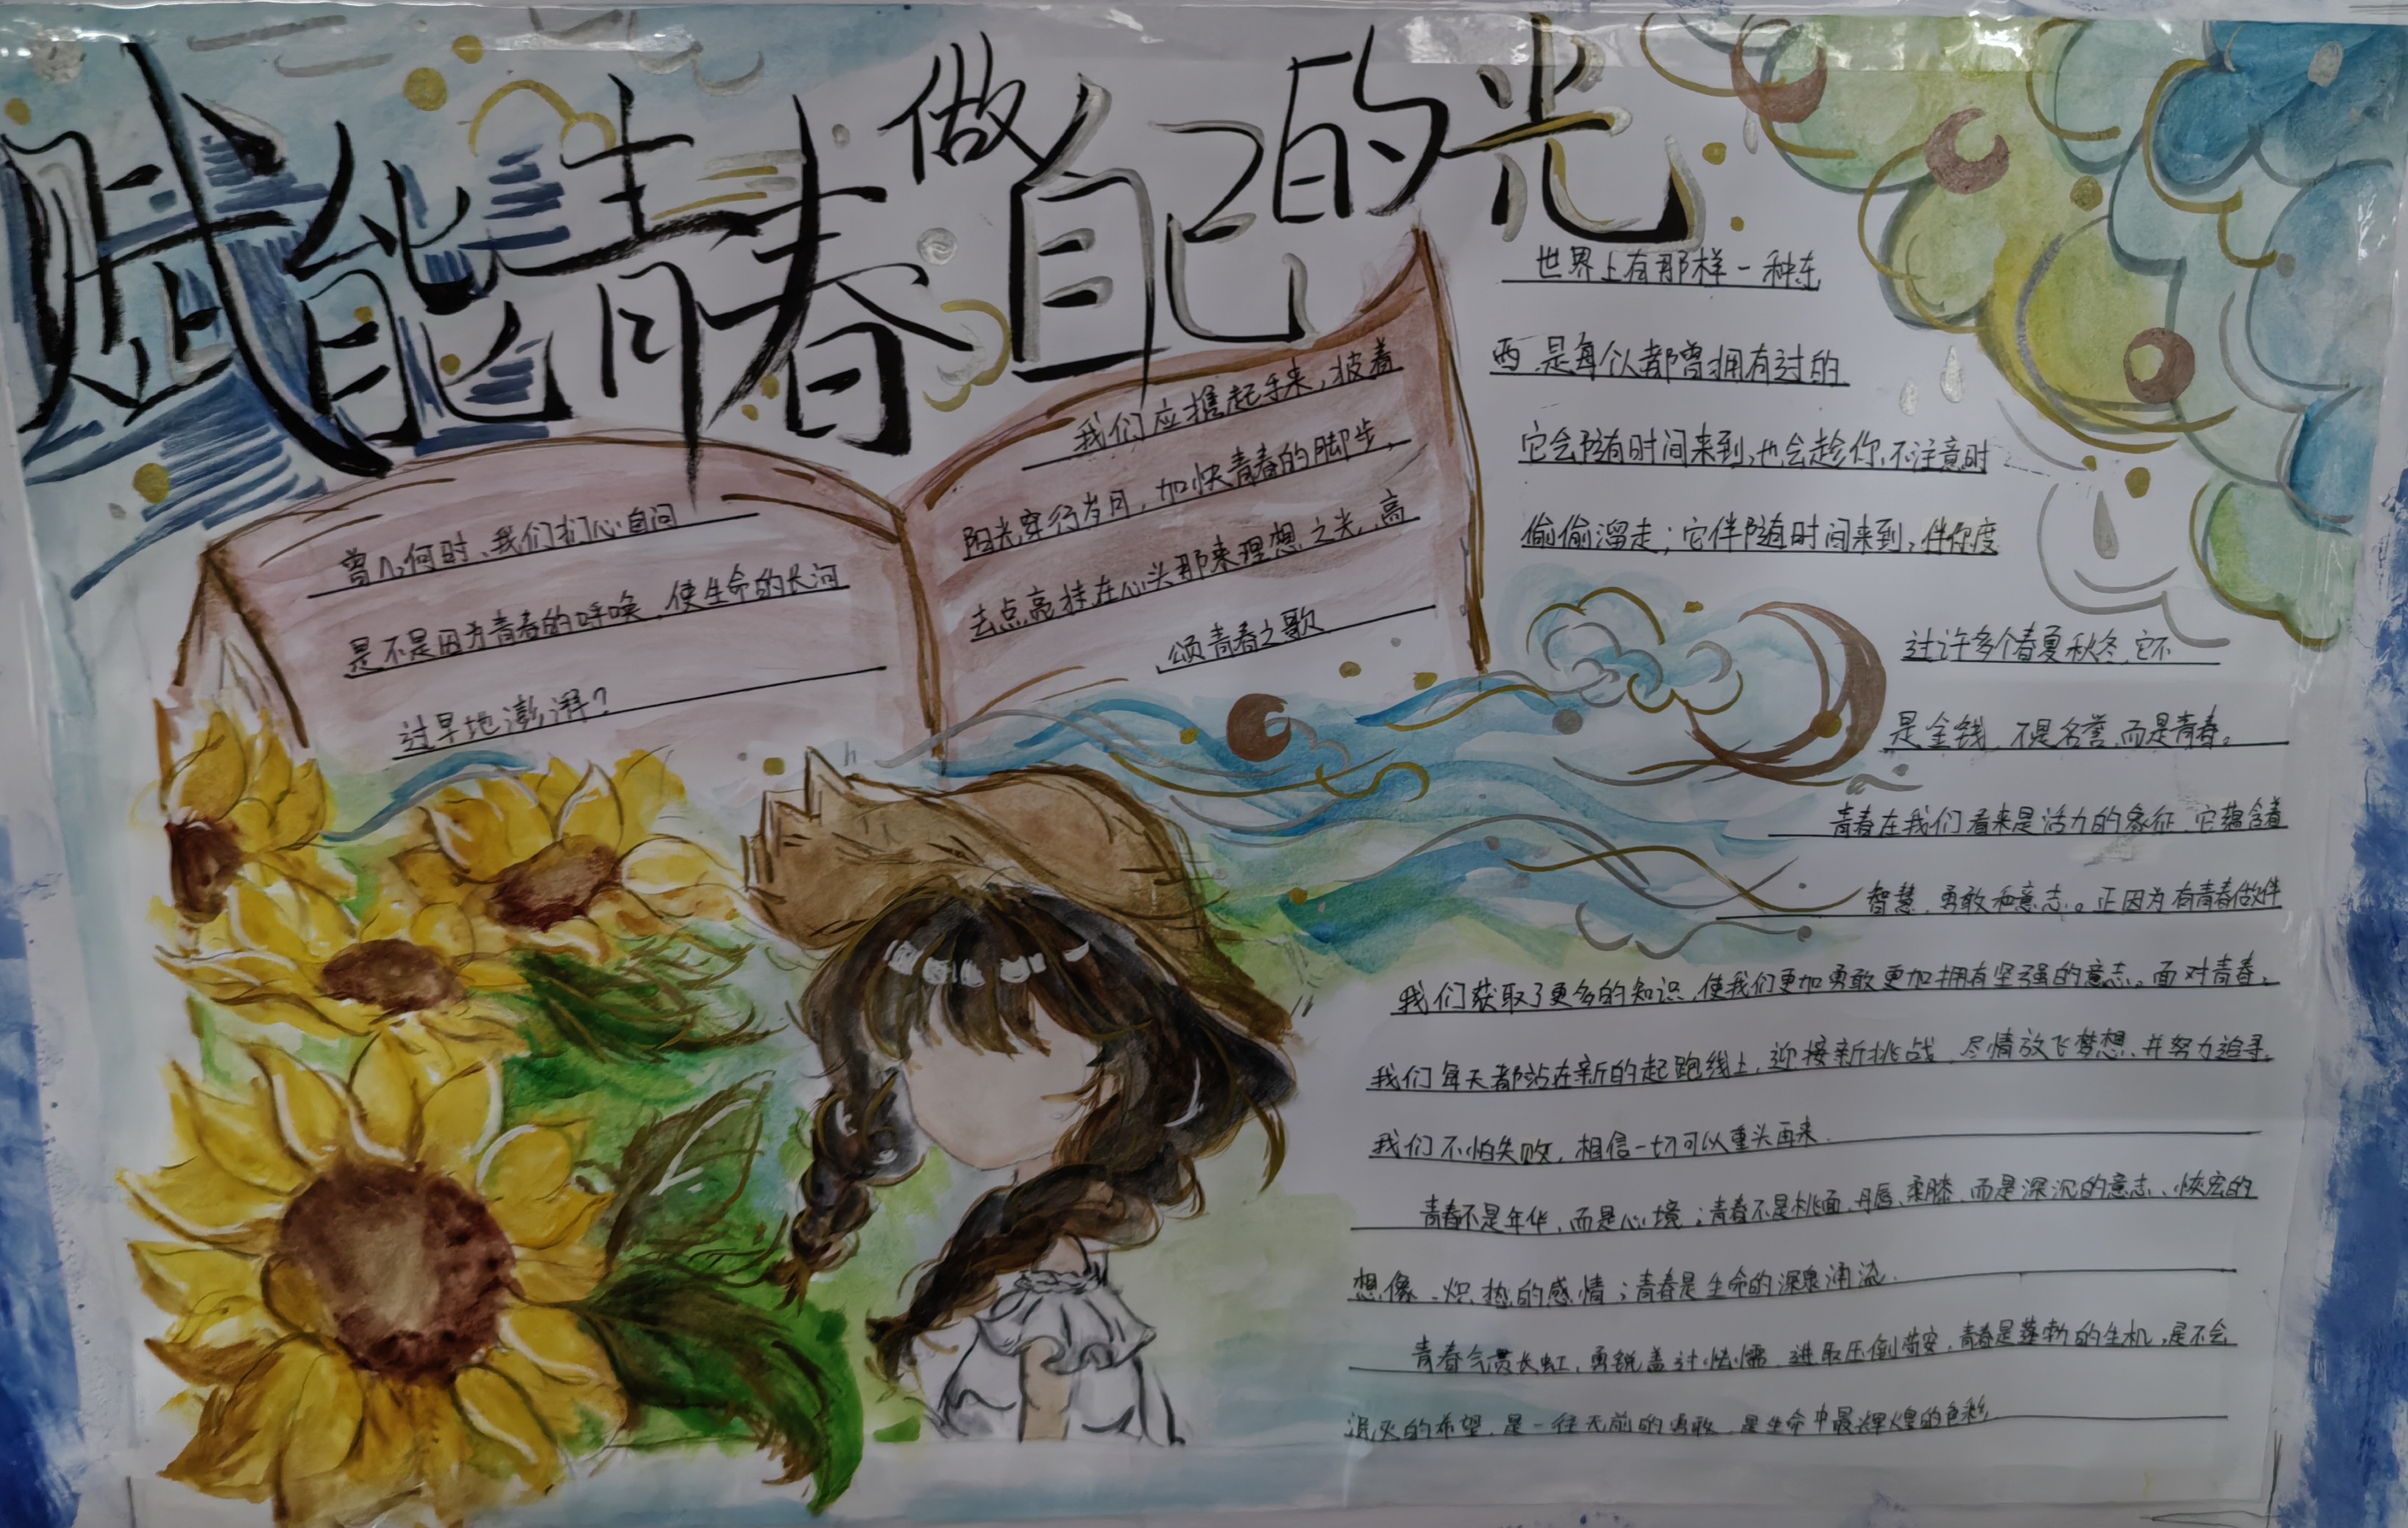 赋能青春做自己的光
曾几何时、我们扪心自问
是不是因为青春的呼唤，使生命的长河
过早地澎湃？
我们应携起手来，披着
阳光穿行岁月，加快青春的脚步，
去点亮挂在心头那来理想之光，高
颂青春之歌
世界上有那样一种东
西，是每个人都曾拥有过的
它会随时间来到，也会趁你，不注意时
偷偷溜走；它伴随时间来到，伴你度
过许多个春夏秋冬，它不
是金钱，不是名誉，而是青春。
青春在我们看来是活力的象征，它蕴含着
智慧，勇敢和意志。正因为有青春做伴
我们获取了更多的知识，使我们更加勇敢更加拥有坚强的意志。面对青春，
我们每天都站在新的起跑线上，迎接新挑战，尽情放飞梦想，并努力追寻，
我们不怕失败，相信一切可以重头再来．
青春不是年华，而是心境；青春不是桃面、丹唇、柔膝，而是深沉的意志、恢宏的
想像、炽热的感情；青春是生命的深泉涌流．
青春气贯长虹，勇锐盖过怯懦，进取压倒苟安，青春是蓬勃的生机，是不会
泯灭的希望，是一往无前的勇敢，是生命中最辉煌的色彩